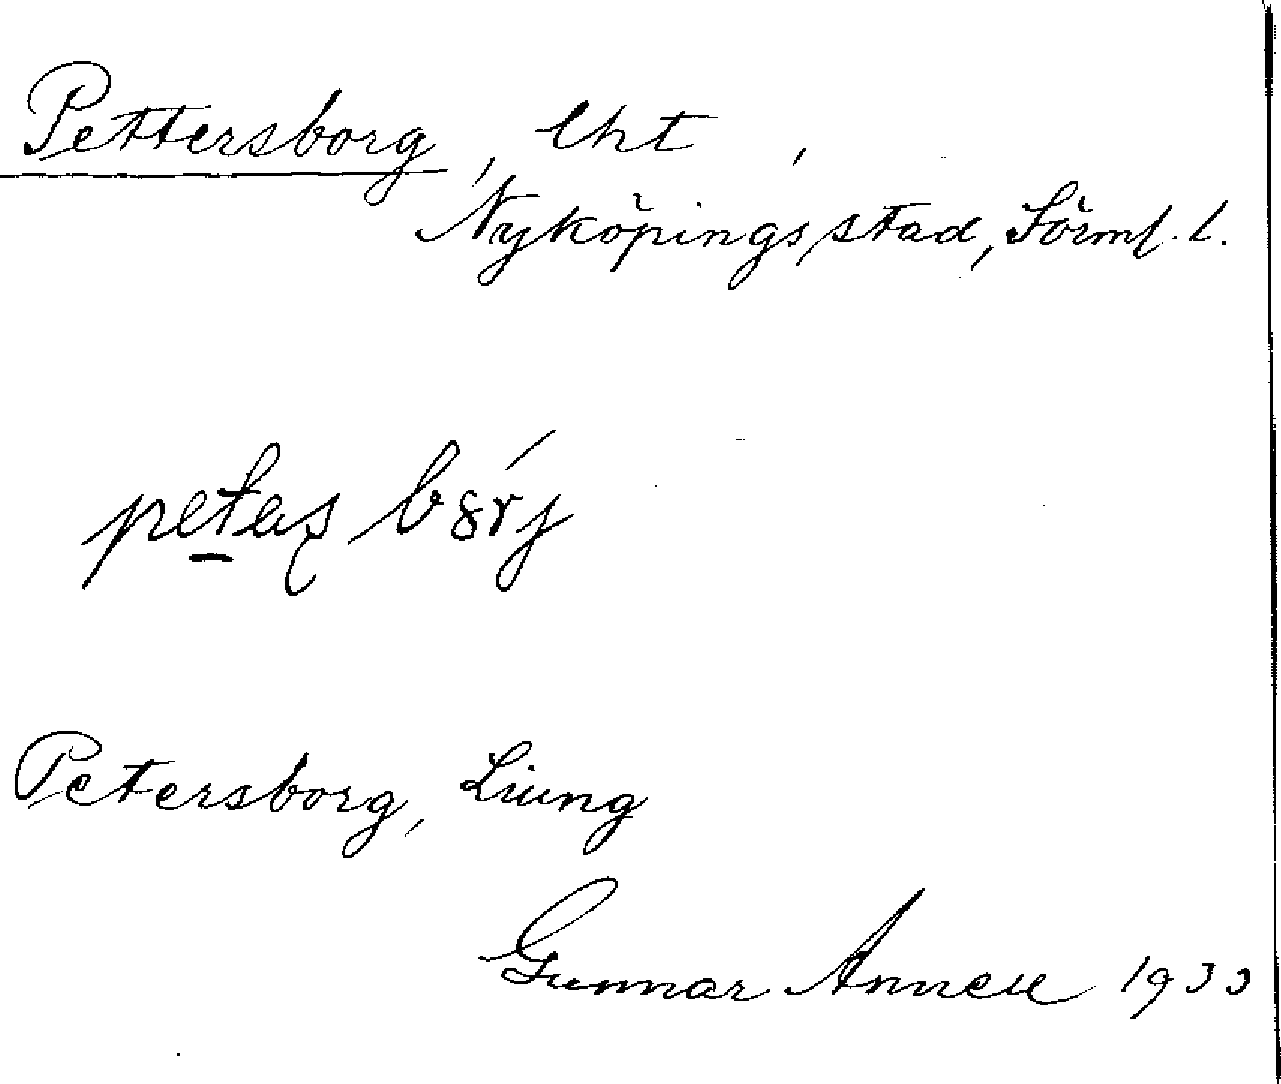 Pettersborg, lht,
Nyköpings stad, Sörml. l.
Petersborg, Ljung
Gunnar Annell 1933